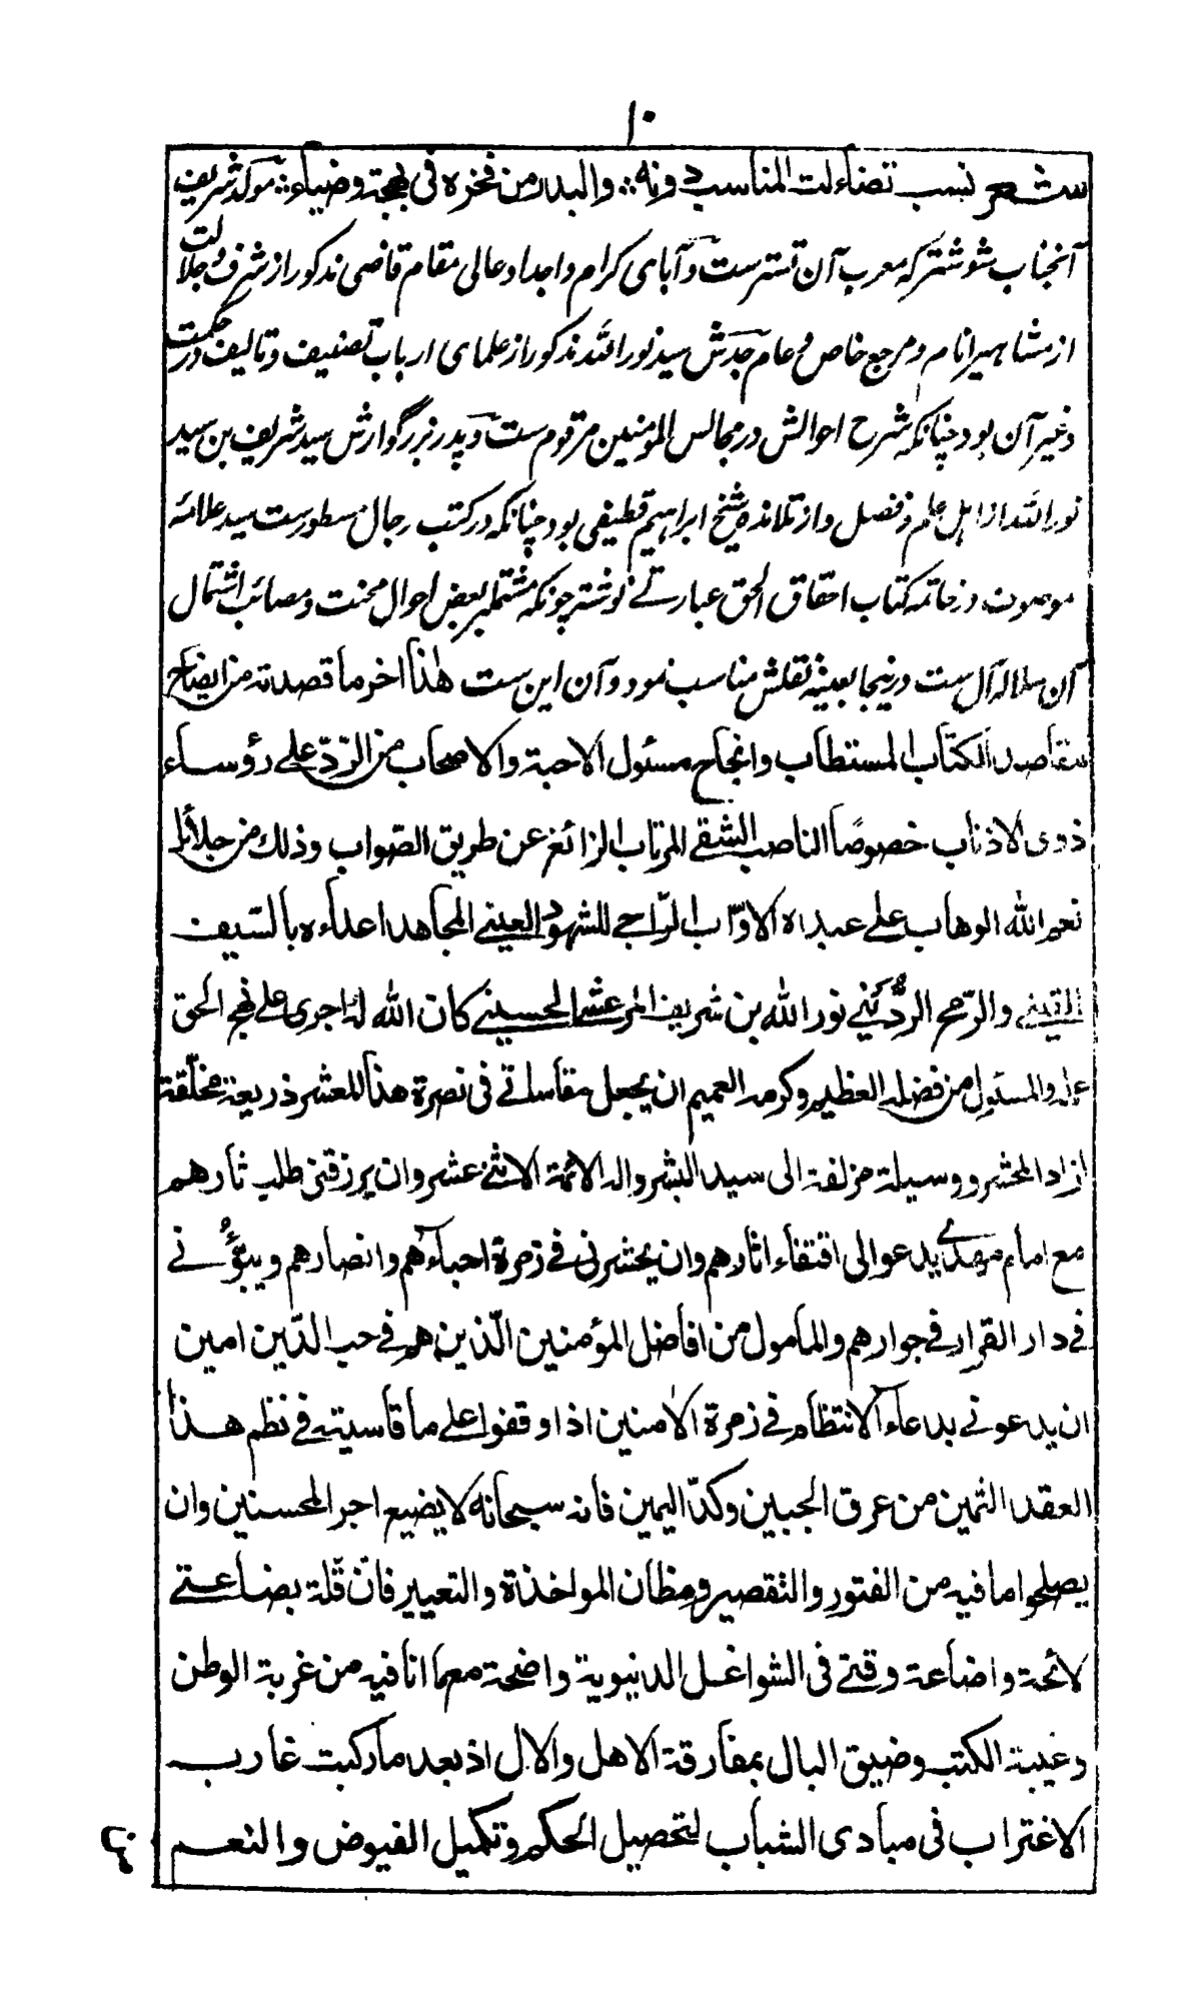 ۱۰
شعر نسب تضاءلت المناسب دونه ؞ والبدر من فخره فی بهجة وضیاء ؞ مولد شریف
آنجناب شوشتر که معرب آن تسترست و آبای کرام و اجداد عالی مقام قاضی مذکور از شرف و جلالت
از مشاهیر انام و مرجع خاص و عام جدش سید نور الله مذکور از علمای ارباب تصنیف و تالیف در حکمت
و غیر آن بود چنانکه شرح احوالش در مجالس المومنین مرقوم ست و پدر بزرگوارش سید شریف بن سید
نور الله از اهل علم و فضل و از تلامذه شیخ ابراهیم قطیفی بود چنانکه در کتب رجال مسطورست سید علامه
موصوف در خاتمه کتاب احقاق الحق عبارتے نوشته چونکه مشتملبر بعض احوال محنت و مصائب اشتمال
آن سلاله آل ست درینجا بعینه نقلش مناسب نمود و آن این ست هذا اخر ما قصدته من ایضاح
مقاصد الکتاب المستطاب وانجاح مسئول الاحبة والاصحاب من الرّدّ علی رؤساء
ذوی الاذناب خصوصًا الناصب الشقی المرتاب الزائغ عن طریق الصّواب وذلک من جلائل
نعم الله الوهاب علی عبده الاوّاب الرّاجی للشهود العینی المجاهد اعداءه بالسّیف
القینی والرّمح الرُّدَینی نور الله بن شریف المرعشی الحسینی کان الله له اجری علی نهج الحق
عمله والمسئول من فضله العظیم وکرمه العمیم ان یجعل مقاساتی فی نصرة هذا المعشر ذریعة مخلّقة
لزاد المحشر ووسیلة مزلفة الی سید البشر واله الائمة الاثنی عشر وان یرزقنی طلب ثارهم
مع امام مهدی یدعو الی اقتفاء اثارهم وان یحشرنی فی زمرة احباءهم وانصارهم ویبؤُنی
فی دار القرار فی جوارهم والمامول من افاضل المؤمنین الّذین هم فی حب الدّین امین
ان یدعونی بدعاء الانتظام فی زمرة الامنین اذا وقفوا علی ما قاسیته فی نظم هذا
العقد الثمین من عرق الجبین وکدّ الیمین فانه سبحانه لا یضیع اجر المحسنین وان
یصلحوا ما فیه من الفتور والتقصیر ومظان المواخذة والتعییر فانّ قلّة بضاعتی
لائحة واضاعة وقتی فی الشواغل الدنیویة واضحة مع ما انا فیه من غربة الوطن
وغیبة الکتب وضیق البال بمفارقة الاهل والال اذ بعد ما رکبت غارب
الاغتراب فی مبادی الشباب لتحصیل الحکم وتکمیل الفیوض والنعم